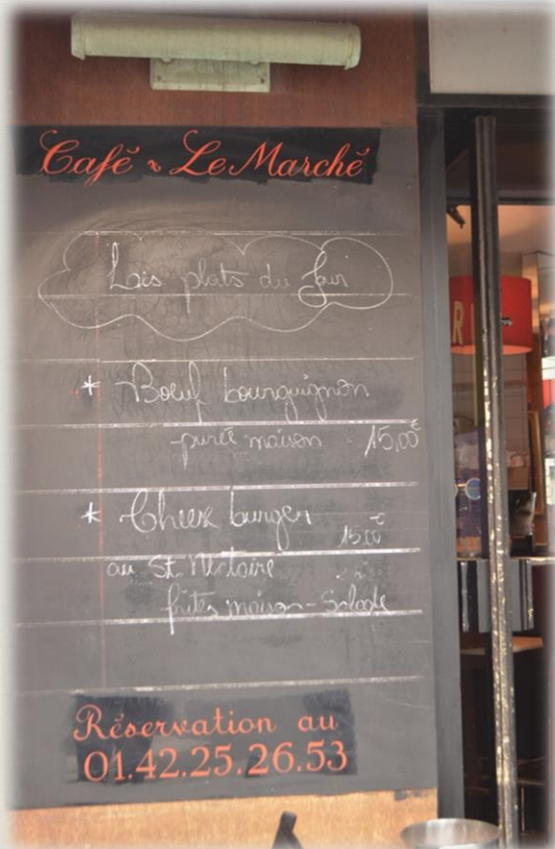 Café ~ Le Marché
Les plats du Jour
* Boeuf bourguignon
purée maison 15,00€
* Cheese burger
15,00€
au St Nectaire
frites maison - Salade
Réservation au
01.42.25.26.53